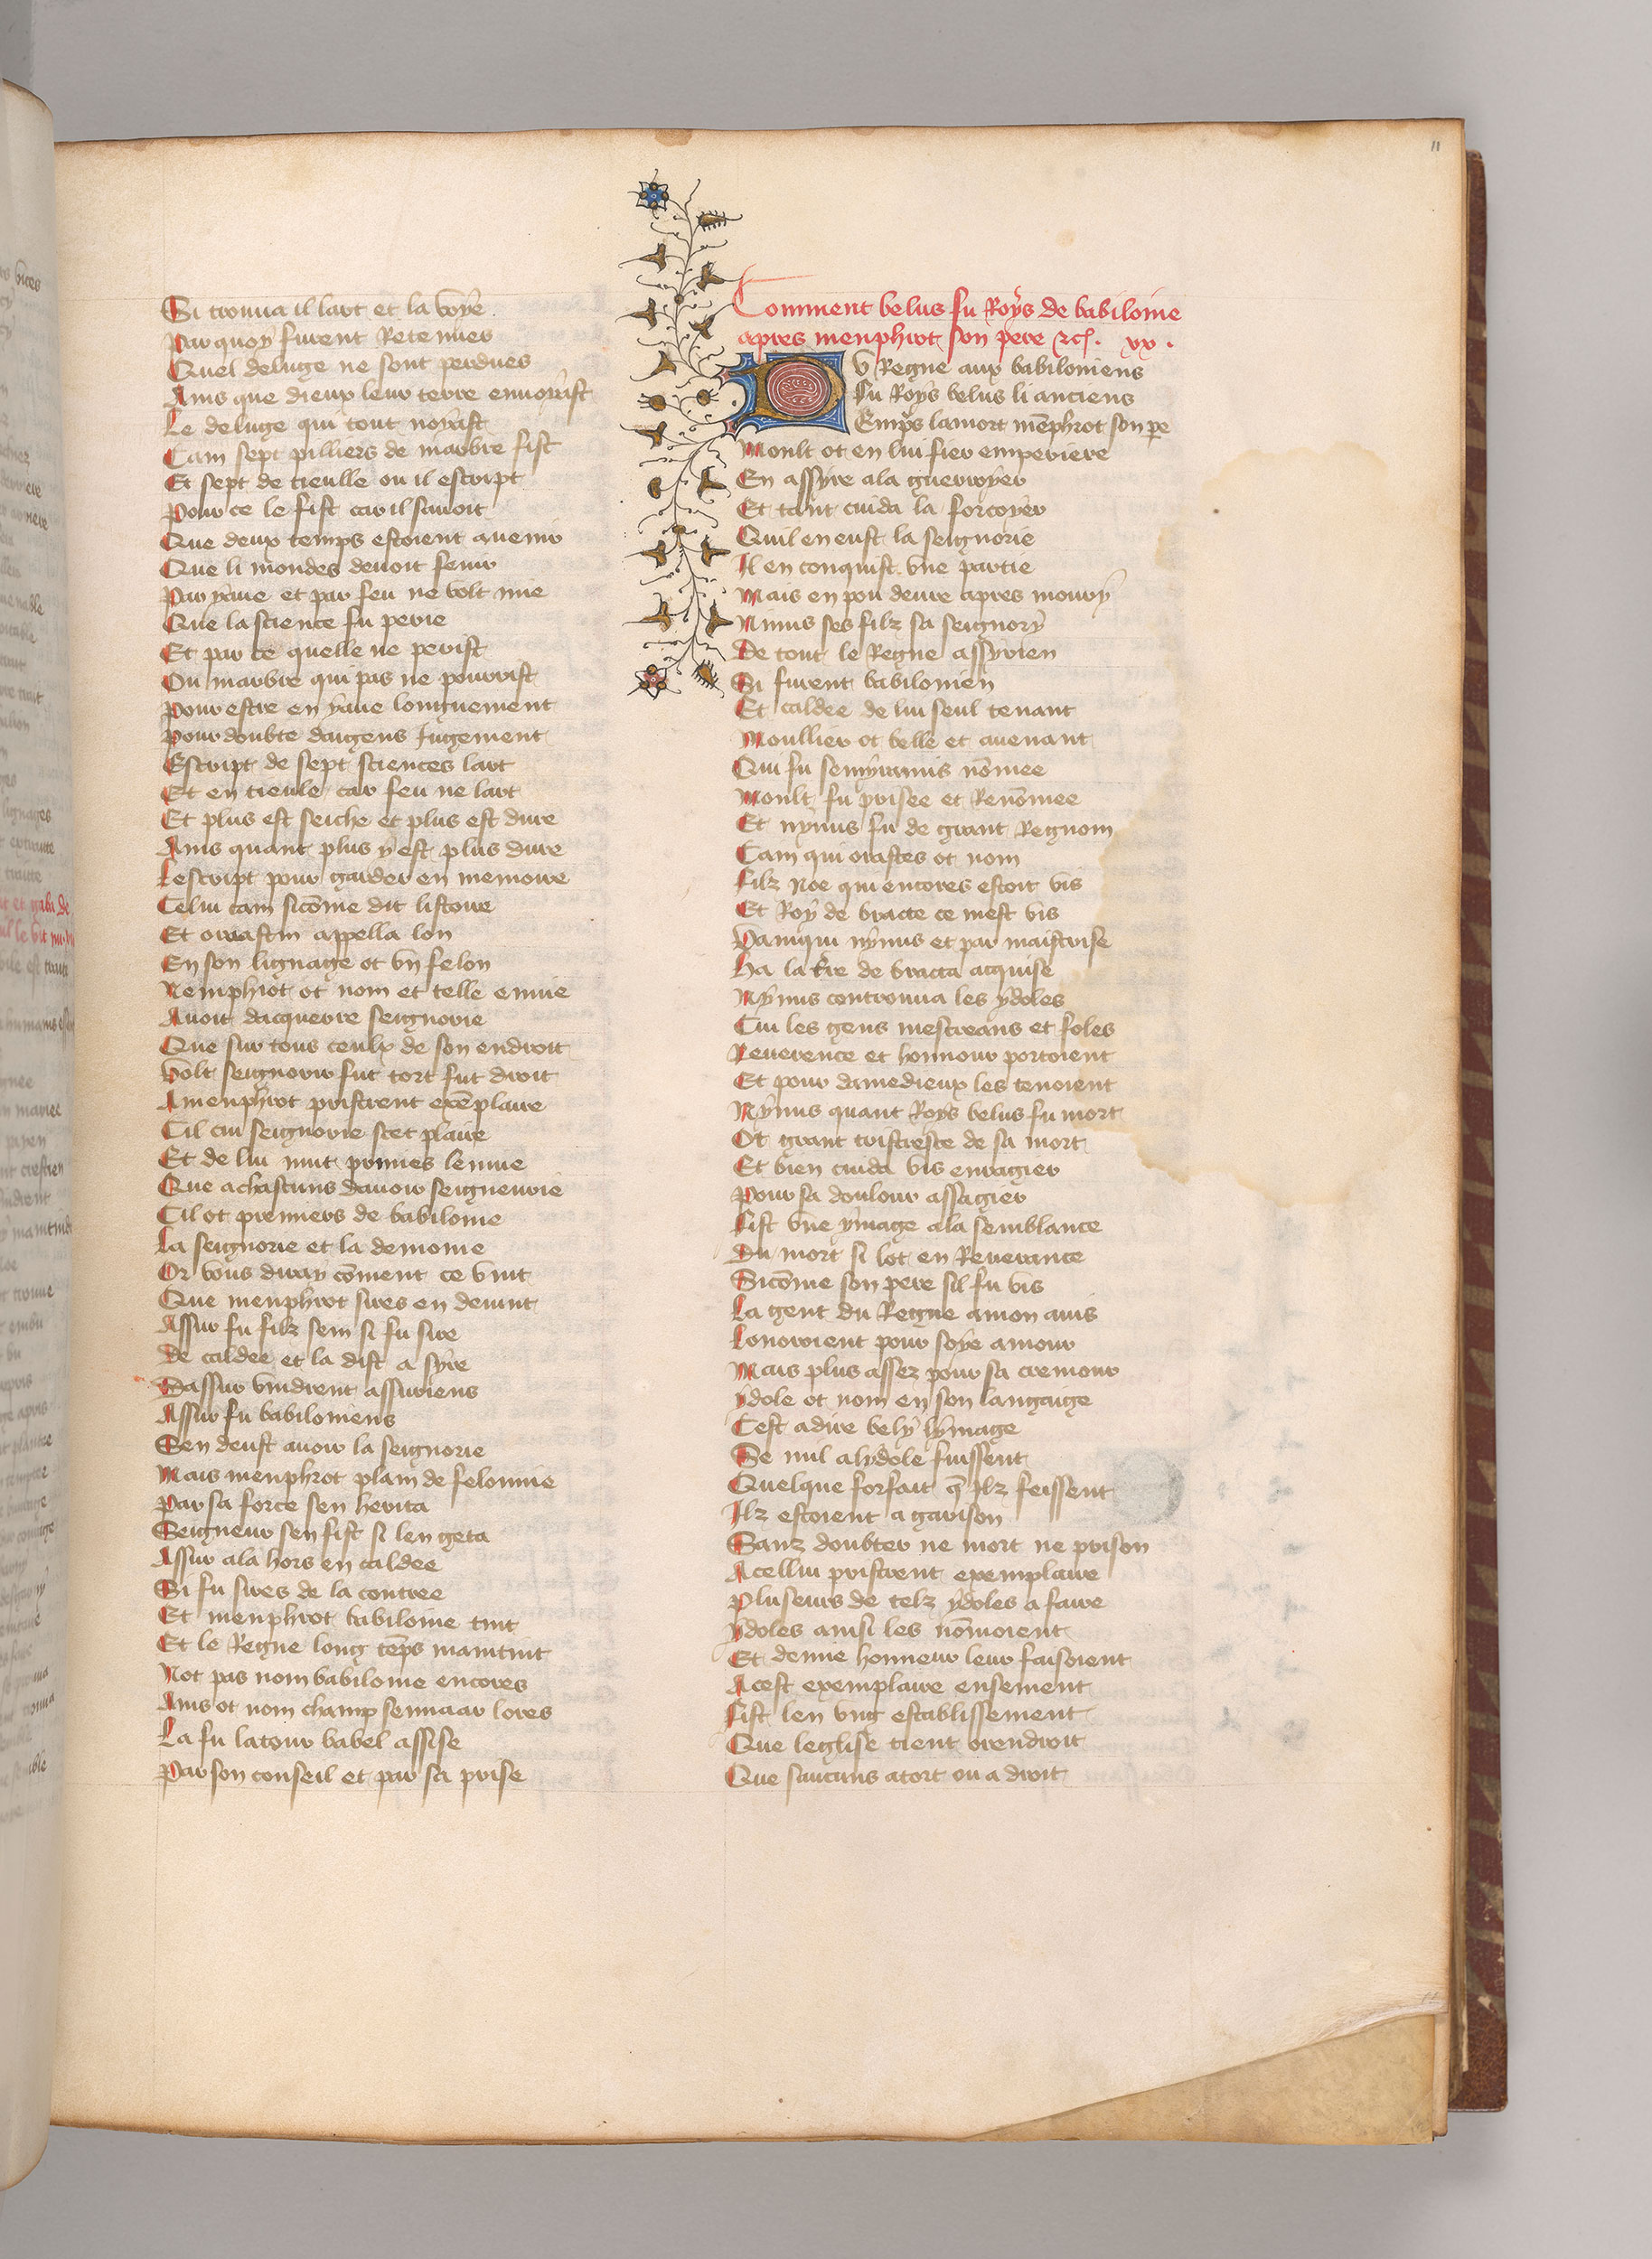 11
Si trouua il lart et la voye
Par quoy furent Retenues
Quel deluge ne sont perdues
Ains que dieux leur terre enuoyast
Le deluge qui tout noyast
Cam sept pilliers de marbre fist
Et sept de tieulle ou il escript
Pour ce le fist car il sauoit
Que deux temps estoient auenir
Que li mondes deuoit fenir
Par yaue et par feu ne volt mie
Que la science fu perie
Et par ce quelle ne perist
Ou marbre qui pas ne pourrist
Pour estre en yaue longuement
Pour doubte daigens Jugement
Escript de sept sciences lart
Et en tieule car feu ne lart
Et plus est seiche et plus est dure
Ains quant plus y est plus dure
Lescript pour garder en memoire
Celui cam sicōme dit listoire
Et oraastin appella lon
En son lignage ot vn felon
Nemphrot ot nom et telle enuie
Auoit dacquerre seignorie
Que sur tous ceulx de son endroit
Volt seignorir fut tort fut droit
A menphrot pristrent exēplaire
Cil cui seignorie scet plaire
Et de lui vint primes lenuie
Que a chascuns dauoir seigneurie
Cil ot premiers de babiloine
La seignorie et la demoine
Or vous diray cōment ce vint
Que menphrot sires en deuint
Assur fu filz sem si fu sire
De caldee et la dist a syre
Dassur vindrent assuriens
Assur fu babiloniens
Sen deust auoir la seignorie
Mais menphrot plain de felonnie
Par sa force sen herita
Seigneur sen fist si len geta
Assur ala hors en caldee
Si fu sires de la contree
Et menphrot babiloine tint
Et le Regne long tēps maintint
Not pas nom babiloine encores
Ains ot nom champ sennaar lores
La fu latour babel assise
Par son conseil et par sa prise
Comment belus fu Roys de babiloine
apres menphrot son pere &c. xx.
DV Regne aux babiloniens
Fu Roys belus li anciens
Emps lamort mēphrot son pe
Moult ot en lui fier emperiere
En assyre ala guerroyer
Et tant cuida la forcoyer
Quil en eust la seignorie
Il en conquist vne partie
Mais en pou deure apres moury
Ninus ses filz sa seignory
De tout le Regne assyrien
Si furent babilonien
Et caldee de lui seul tenant
Moullier ot belle et auenant
Qui fu semyramis nōmee
Moult fu prisee et Renōmee
Et nynus fu de grant Regnom
Cam qui orastes ot nom
Filz Noe qui encores estoit vis
Et Roy de bracte ce mest vis
Vainqui nynus et par maistrise
Ha la t̄re de bracta acquise
Nynus controuua les ydoles
Cui les gens mescreans et foles
Reuerence et honnour portoient
Et pour damedieux les tenoient
Nynus quant Roys belus fu mort
Ot grant tristresce de sa mort
Et bien cuida vis enragier
Pour sa doulour assagier
Fist vne ymage ala semblance
Du mort si lot en Reuerance
Sicōme son pere sil fu vis
La gent du Regne amon auis
Lonoroient pour soye amour
Mais plus assez pour sa cremour
Ydole ot nom en son langaige
Cest adire bely lymage
Se nul alydole fuissent
Quelque forfait q̄ Ilz feissent
Ilz estoient a garison
Sanz doubter ne mort ne prison
Acellui pristrent exemplaire
Pluseurs de telz ydoles a faire
Ydoles ainsi les nōmoient
Et deuie honneur leur faisoient
Acest exemplaire ensement
Fist len vng establissement
Que leglise tient orendroit
Que saucuns atort ou a droit